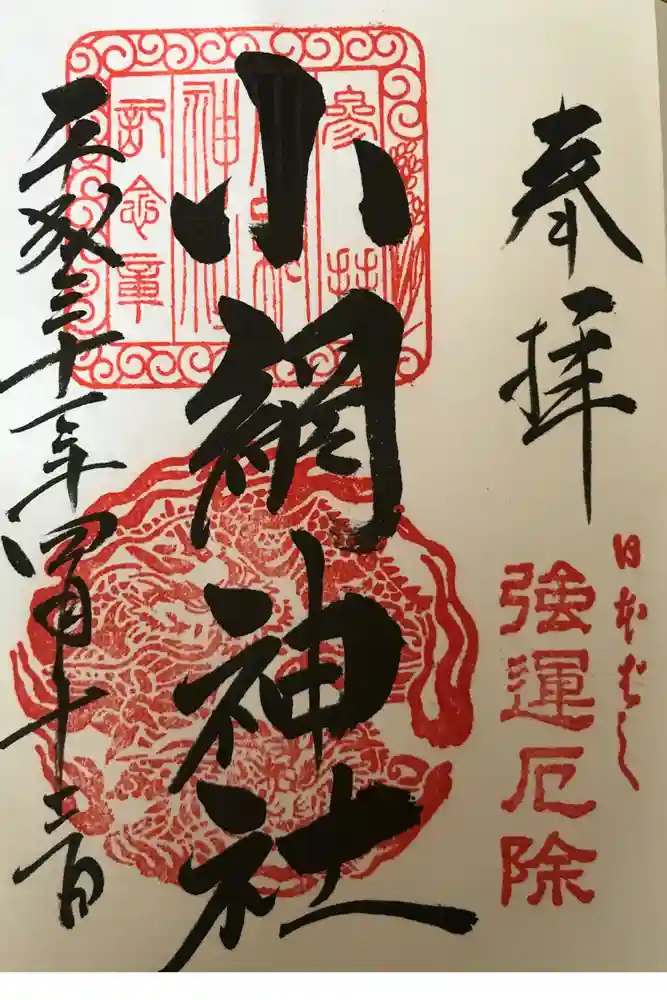 奉拝
日本ばし
強運厄除
參拝
小網神社
記念章
小網神社
平成三十一年四月十二日